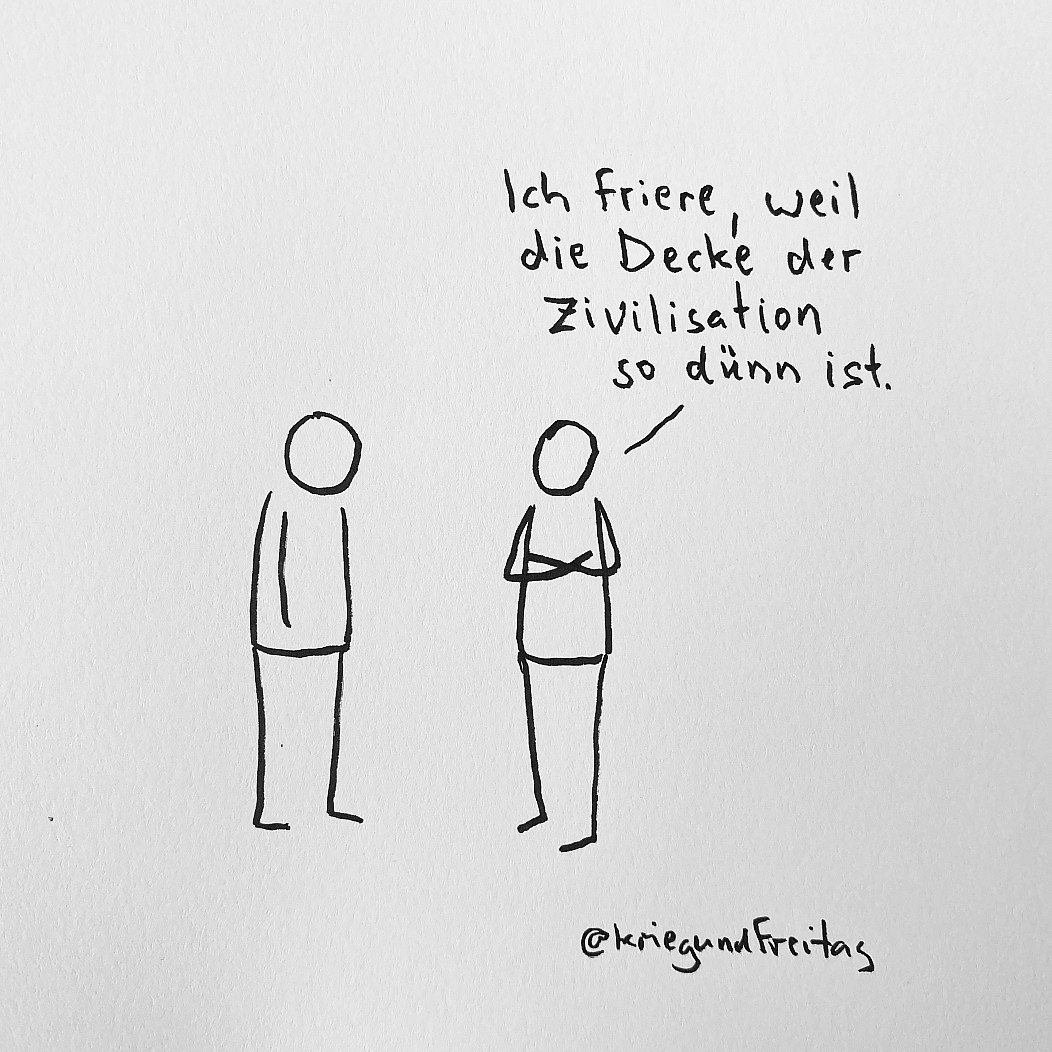 Ich friere, weil
die Decke der
Zivilisation
so dünn ist.
@kriegundfreitag